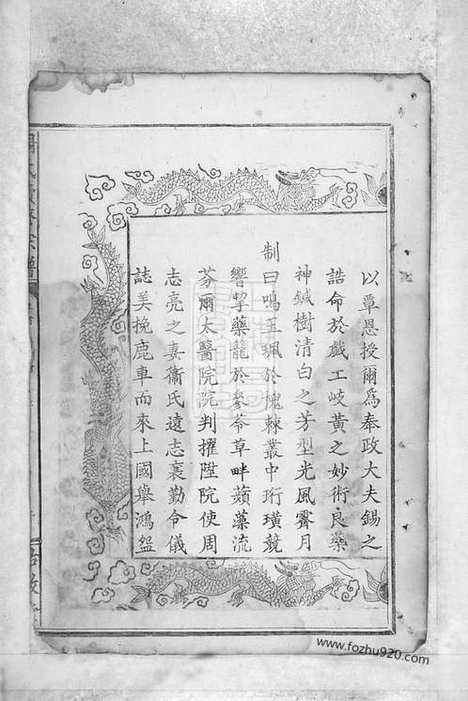 以覃恩授爾爲奉政大夫錫之
誥命於戲工岐黃之妙術良藥
神鍼樹清白之芳型光風霽月
制曰鳴玉珮於槐棘叢中珩璜競
響挈藥籠於參苓草畔蘋藻流
芬爾太醫院院判擢陞院使周
志亮之妻衞氏遠志襄勤令儀
誌美挽鹿車而來上國舉鴻盤
www.fozhu920.com